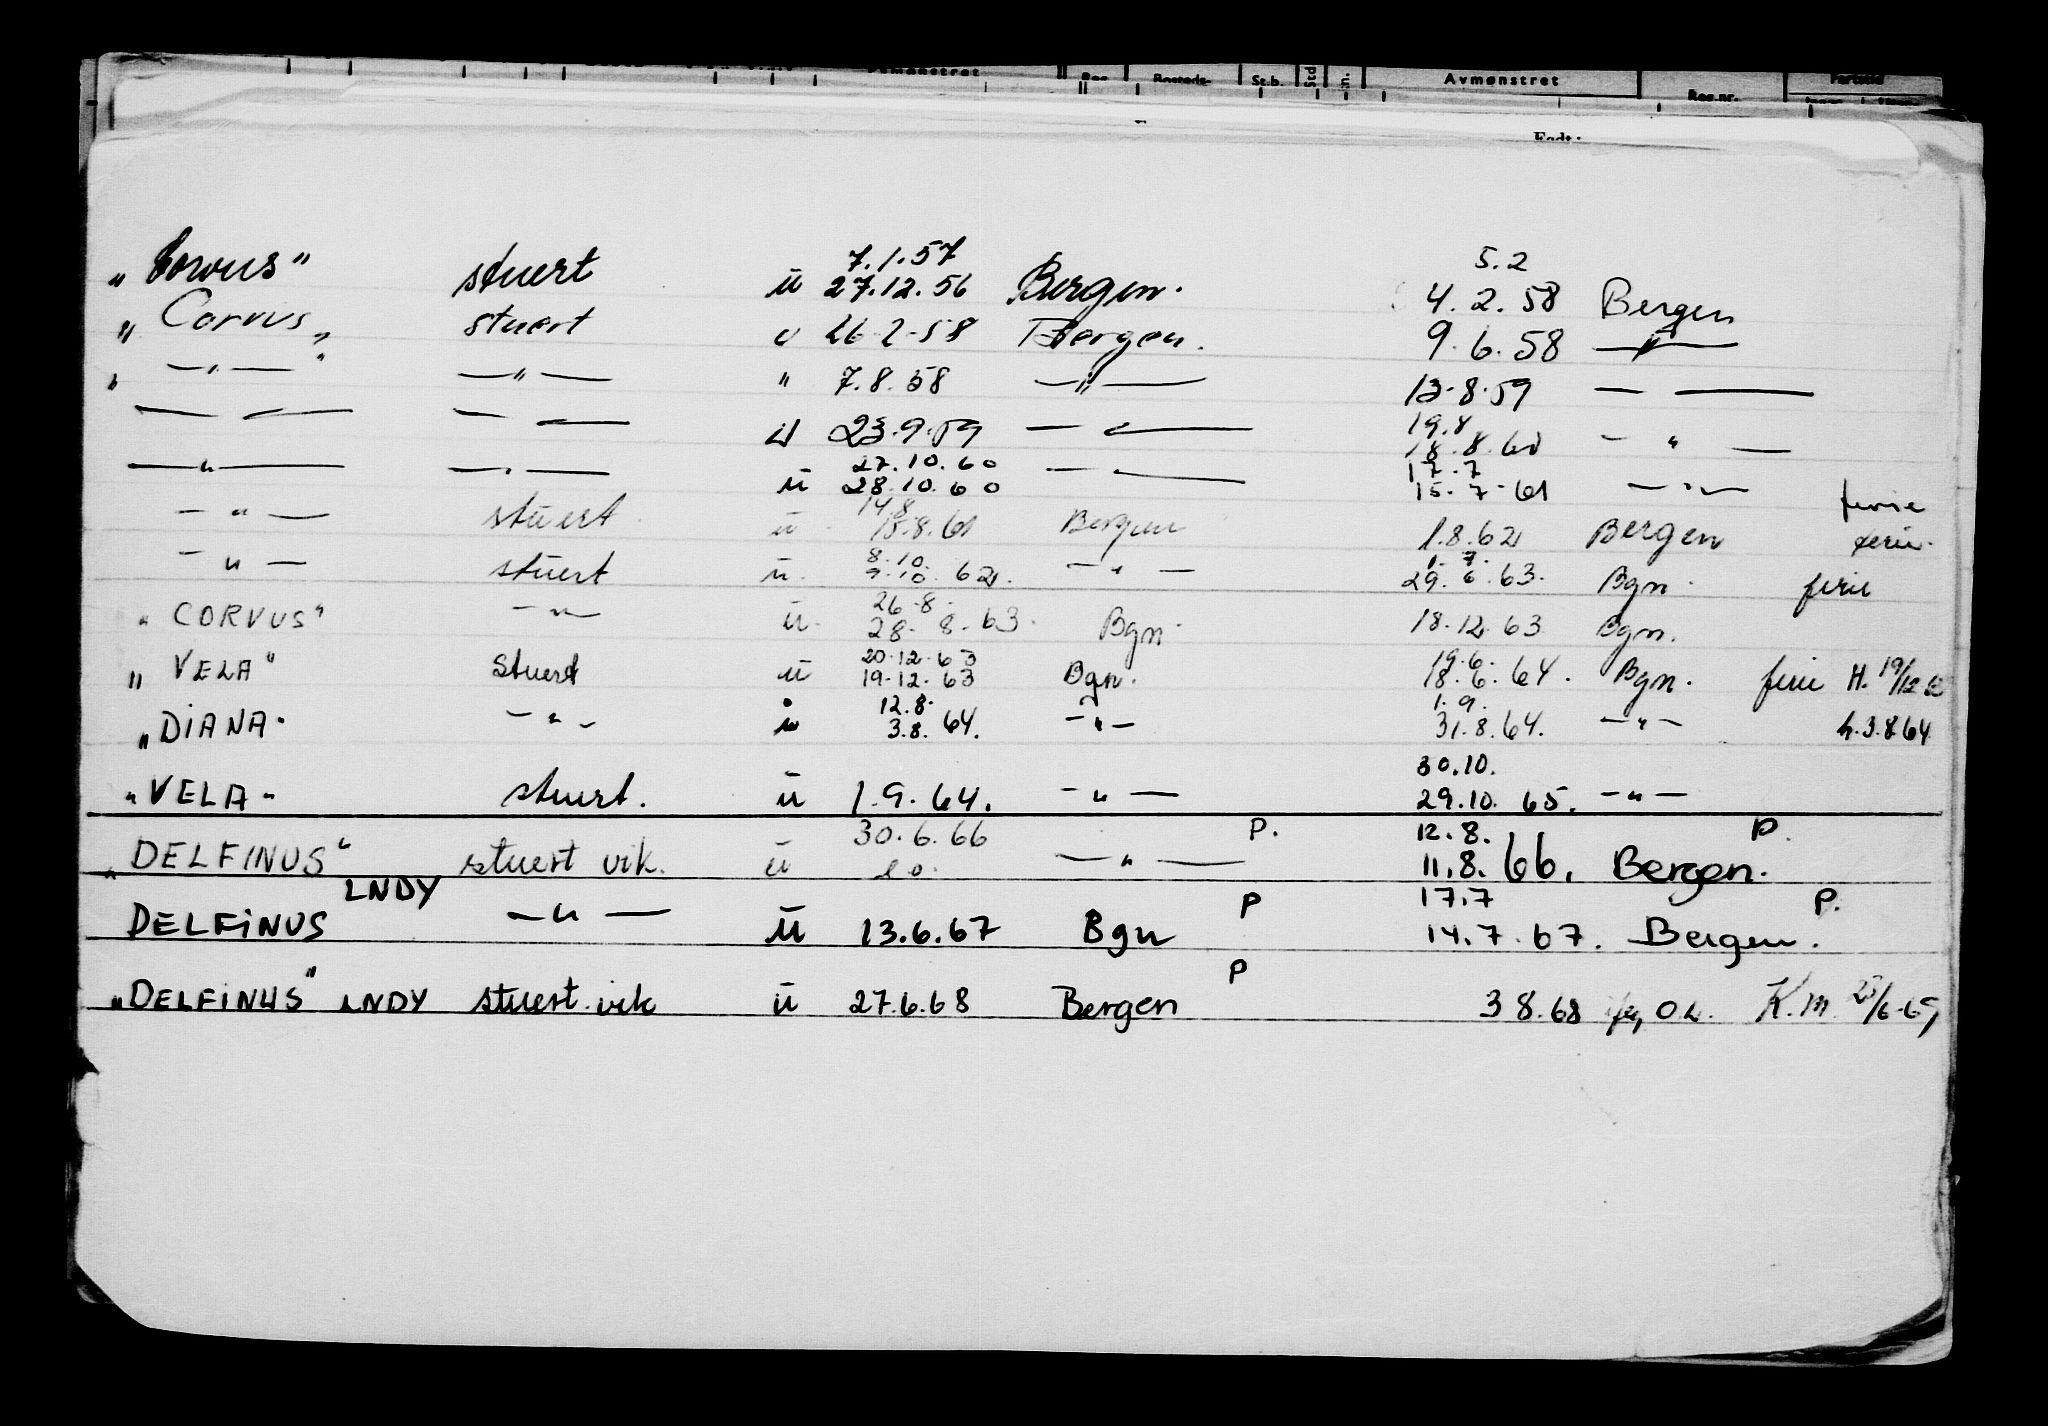 Avmønstret
"Corvus" stuert u 7.1.57 27.12.56 Bergen. 5.2 4.2.58 Bergen
"Corvus" stuert u 26.2.58 Bergen. 9.6.58 — " —
" — " — " — " — " 7.8.58 — " — 13.8.59 — —
— — — — u 23.9.59 — — 19.8 18.8.60 — " —
— " — — " — u 27.10.60 28.10.60 — — 17.7 15.7.61 — " — ferie
— " — stuert u 14.8 15.8.61 Bergen 1.8.62 Bergen ferie.
— " — stuert u. 8.10. 9.10.62. — " — 1.7. 29.6.63. Bgn. ferie
"CORVUS" — " — u. 26.8. 28.8.63. Bgn. 18.12.63 Bgn.
"VELA" Stuert u 20.12.63 19.12.63 Bgn. 19.6. 18.6.64. Bgn. ferie H. 19/12
"DIANA" — " — u 12.8. 3.8.64. — " — 1.9. 31.8.64. — " — h.3.8.64
"VELA" stuert. u 1.9.64. — " — 30.10. 29.10.65. — " —
"DELFINUS" stuert vik. u 30.6.66 — " — P. 12.8. 11.8.66. Bergen. P.
DELFINUS LNDY — " — u 13.6.67 Bgn P 17.7 14.7.67. Bergen. P.
"DELFINUS" LNDY stuert vik u 27.6.68 Bergen P 3 8.68 K.m.